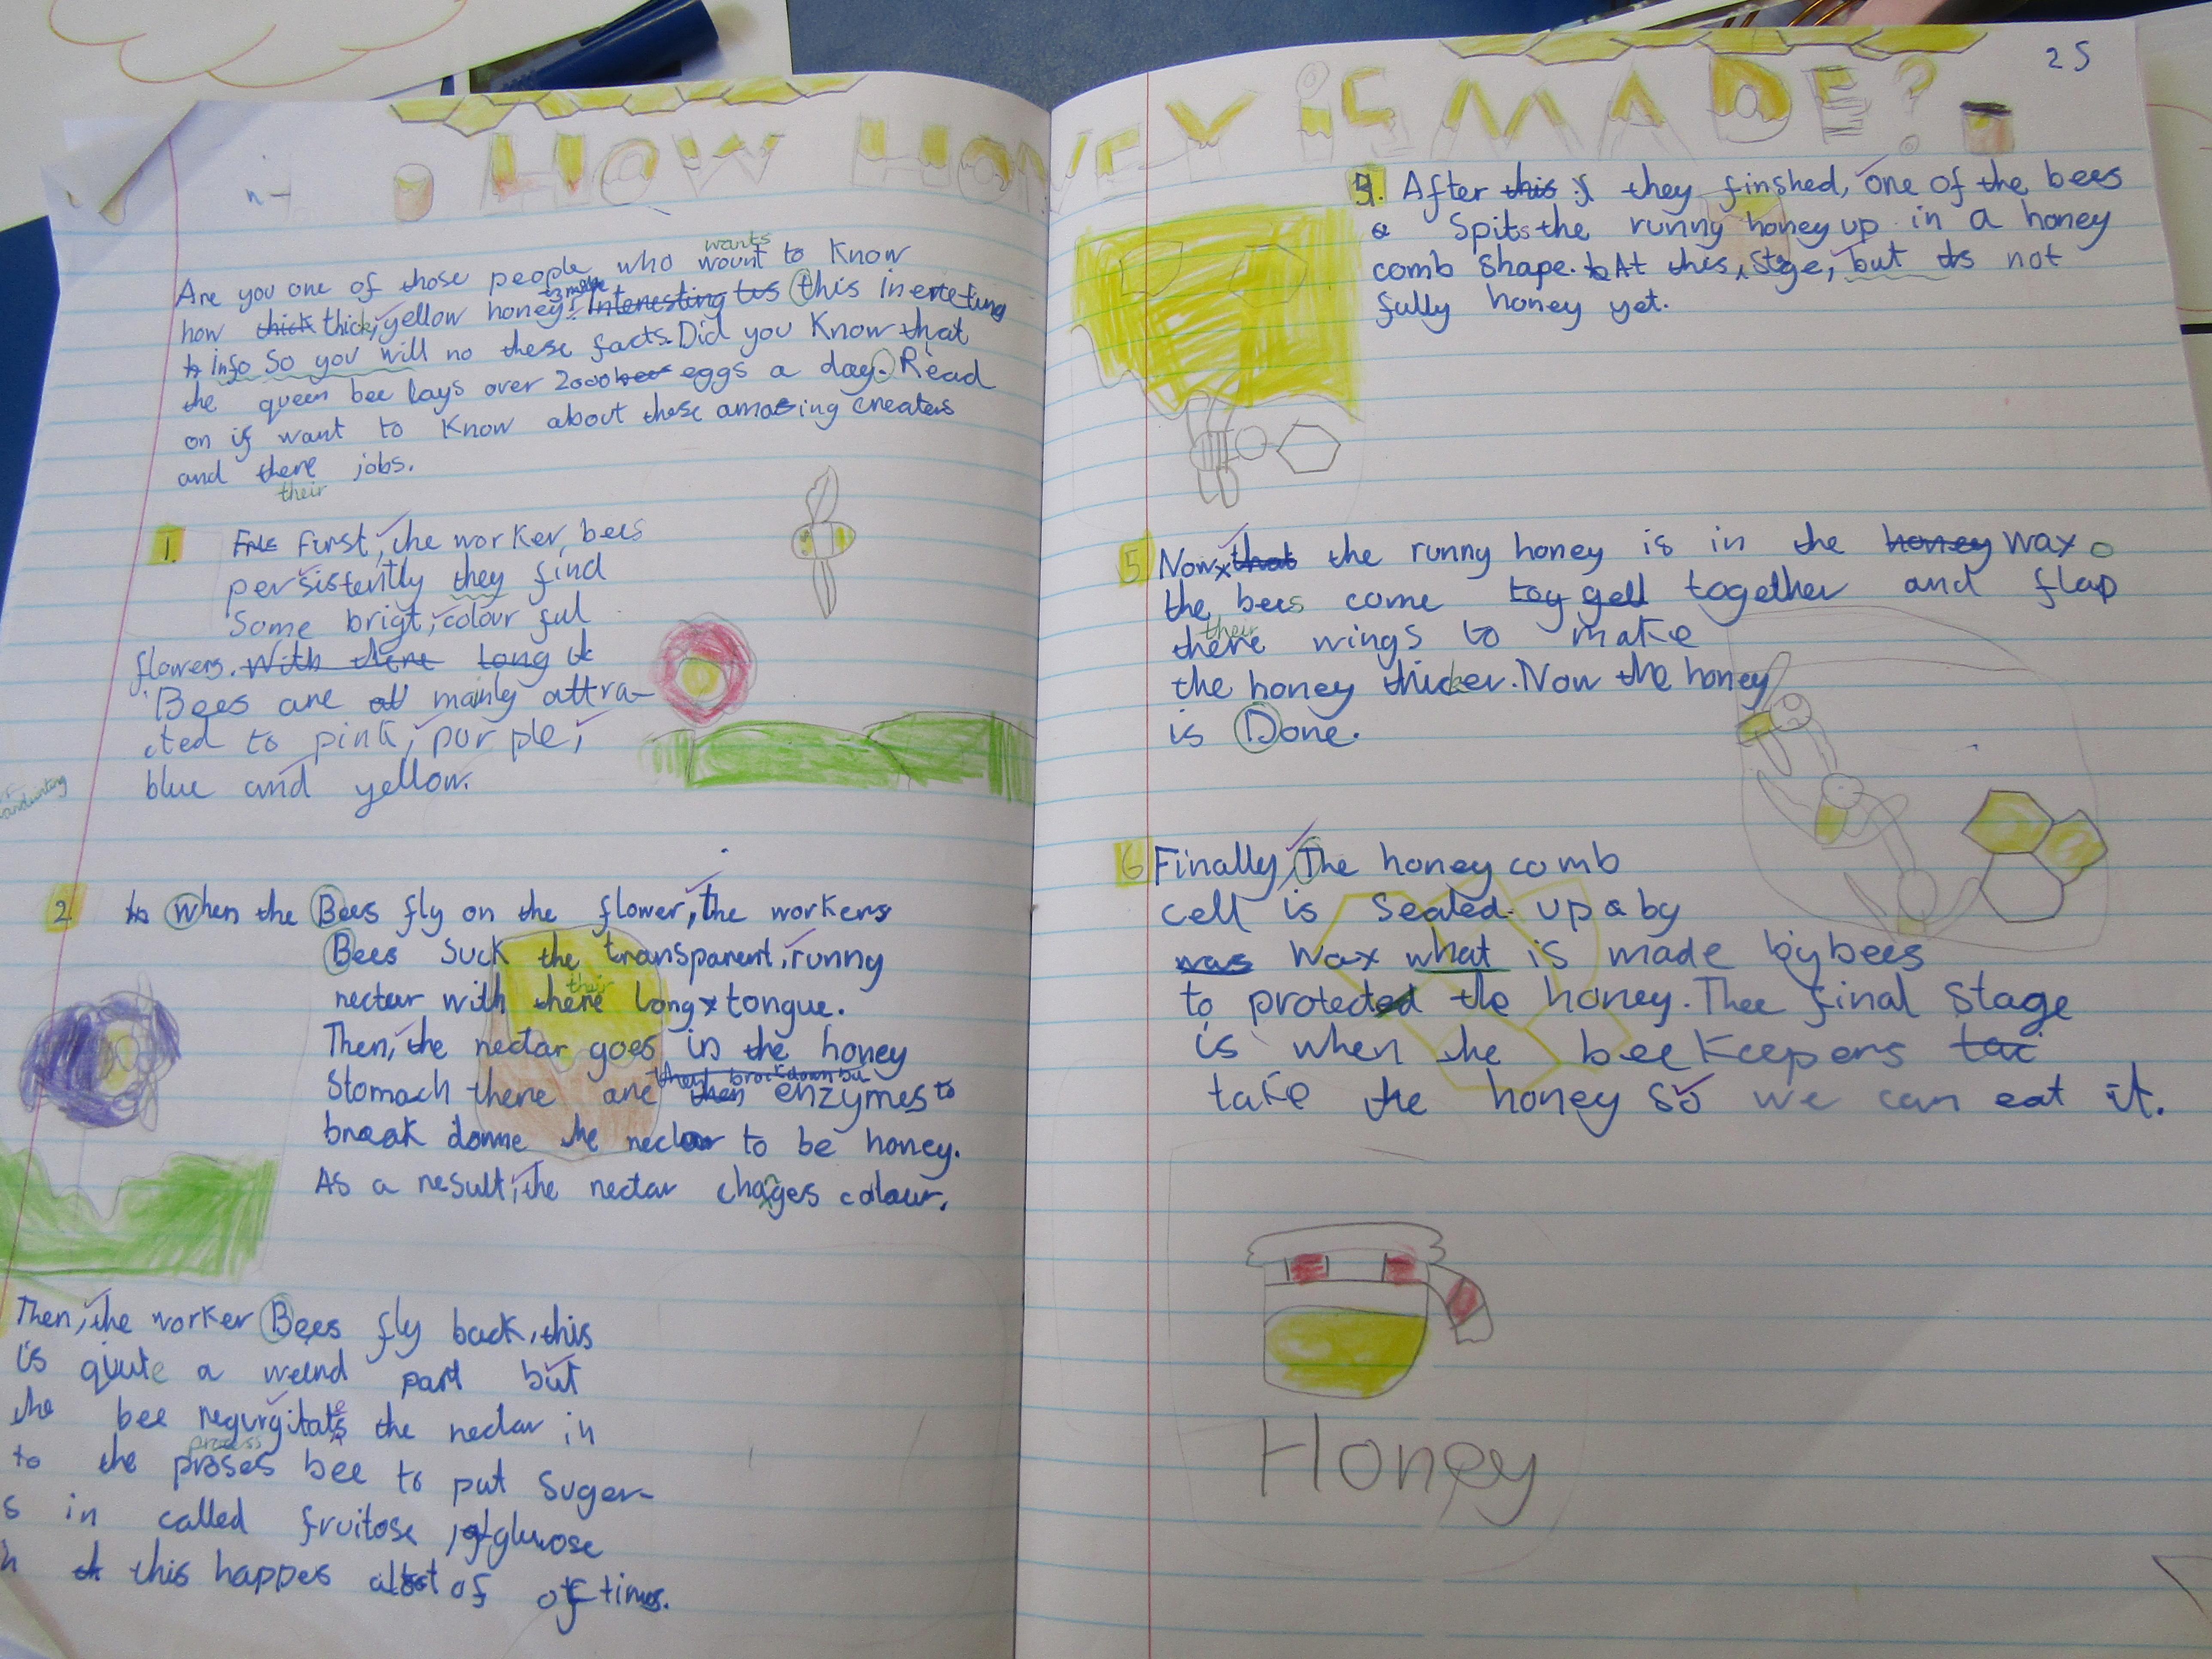 HOW HONEY iS MADE?
25
wants
Are you one of those people who wount to know
to make
how thick thick, yellow honey? Interesting tus this inerteting
to info So you will no these facts. Did you know that
the queen bee lays over 2000 bees eggs a day. Read
on if want to know about these amazing creaters
and there jobs.
their
1. First, the worker bees
persistently they find
Some brigt, colour ful
flowers. With there long
Bees are all mainly attra-
cted to pink, purple,
blue and yellow.
handwriting
2. When the Bees fly on the flower, the workers
Bees Suck the transparent, runny
their
nectar with there long tongue.
Then, the nectar goes in the honey
then brockdown
Stomach there are then enzymes to
break donne the nectar to be honey.
As a result, the nectar chages colour.
Then, the worker Bees fly back, this
is quite a weird part but
the bee regurgitates the nectar in
process
to the proses bee to put suger-
s in called fruitose, glucose
this happes alot of of times.
4. After this if they finshed, one of the bees
a Spits the runny honey up in a honey
comb shape. At this, stge, but its not
fully honey yet.
5 Now that the runny honey is in the honey wax
the bees come toy gell together and flap
their
there wings to make
the honey thicker. Now the honey
is Done.
6 Finally, The honey comb
cell is Sealed up a by
was wax what is made by bees
to protected the honey. Thee final stage
is when the bee keepers tac
take the honey so we can eat it.
Honey